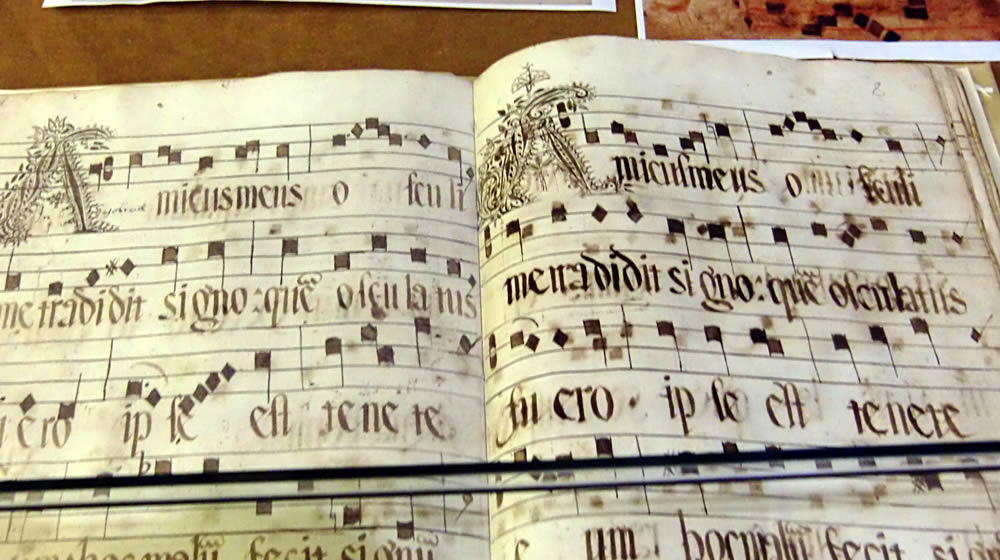 Amicus meus o sculi
me tradidit signo: quē osculatus
ero ipse est tenete
hoc malū fecit signū
8
Amicus meus o sculi
me tradidit signo: quē osculatus
fuero · ipse est tenete
um hoc malū fecit si